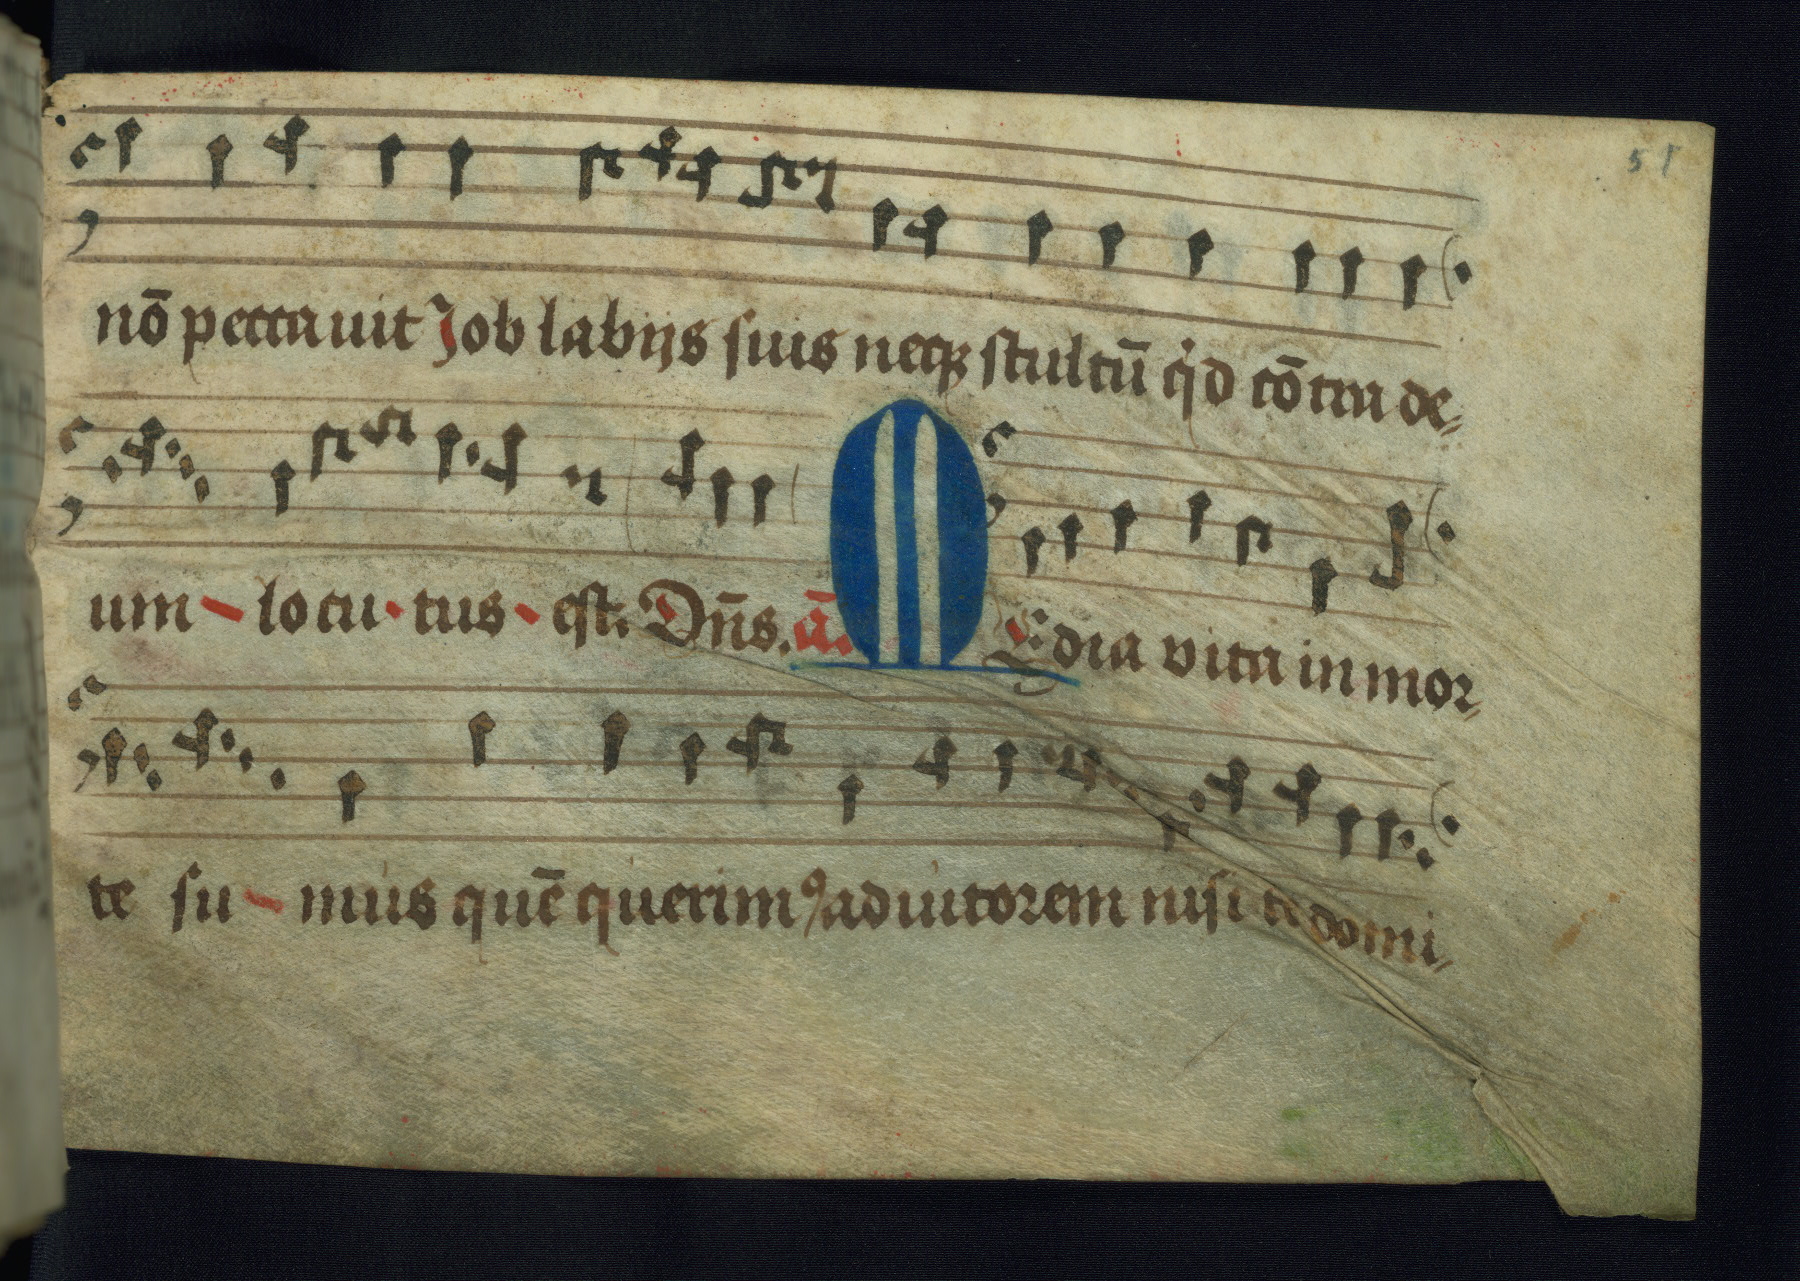 51
nō peccauit Job labijs suis neqꝫ stultū qͥd cōtra de-
um - locu - tus - est. Dn̄s. a͞. M Edia vita in mor-
te su - mus quē querimꝰ adiutorem nisi te domi-